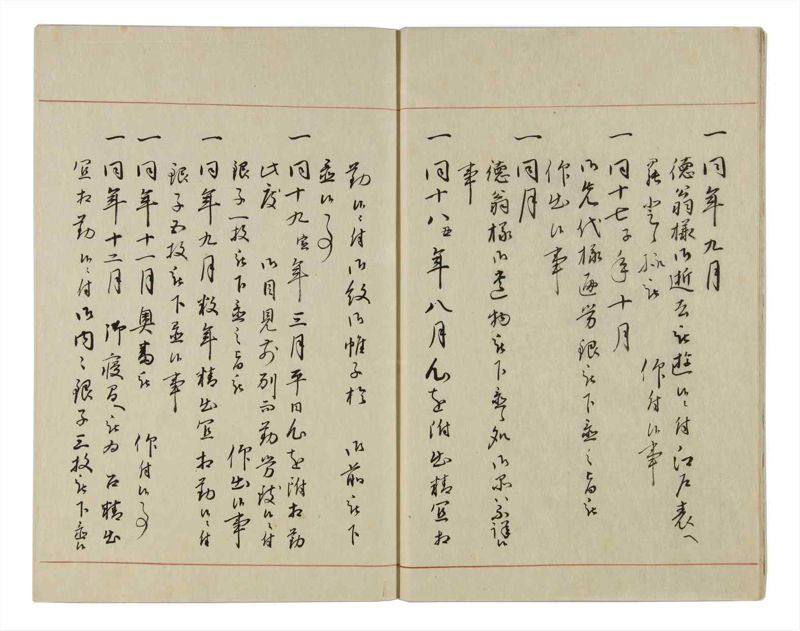 一同年九月
徳翁様御逝去被遊候ニ付江戸表へ
罷登候様被 仰付候事
一同十七子年十月
御先代様御労銀被下置之旨被
仰出候事
一同月
徳翁様御遺物被下置候処御品は不詳候
事
一同十八丑年八月心を附出精宜相
勤候ニ付御紋御帷子於 御前被下
置候事
一同十九寅年三月平日心を附相勤
此度 御目見前列而勤労致候ニ付
銀子一枚被下置之旨被 仰出候事
一同年九月数年精出宜相勤候ニ付
銀子五枚被下置候事
一同年十一月奥番被 仰付候事
一同年十二月 御寝間へ被為召精出
宜相勤候ニ付御内々銀子三枚被下置候